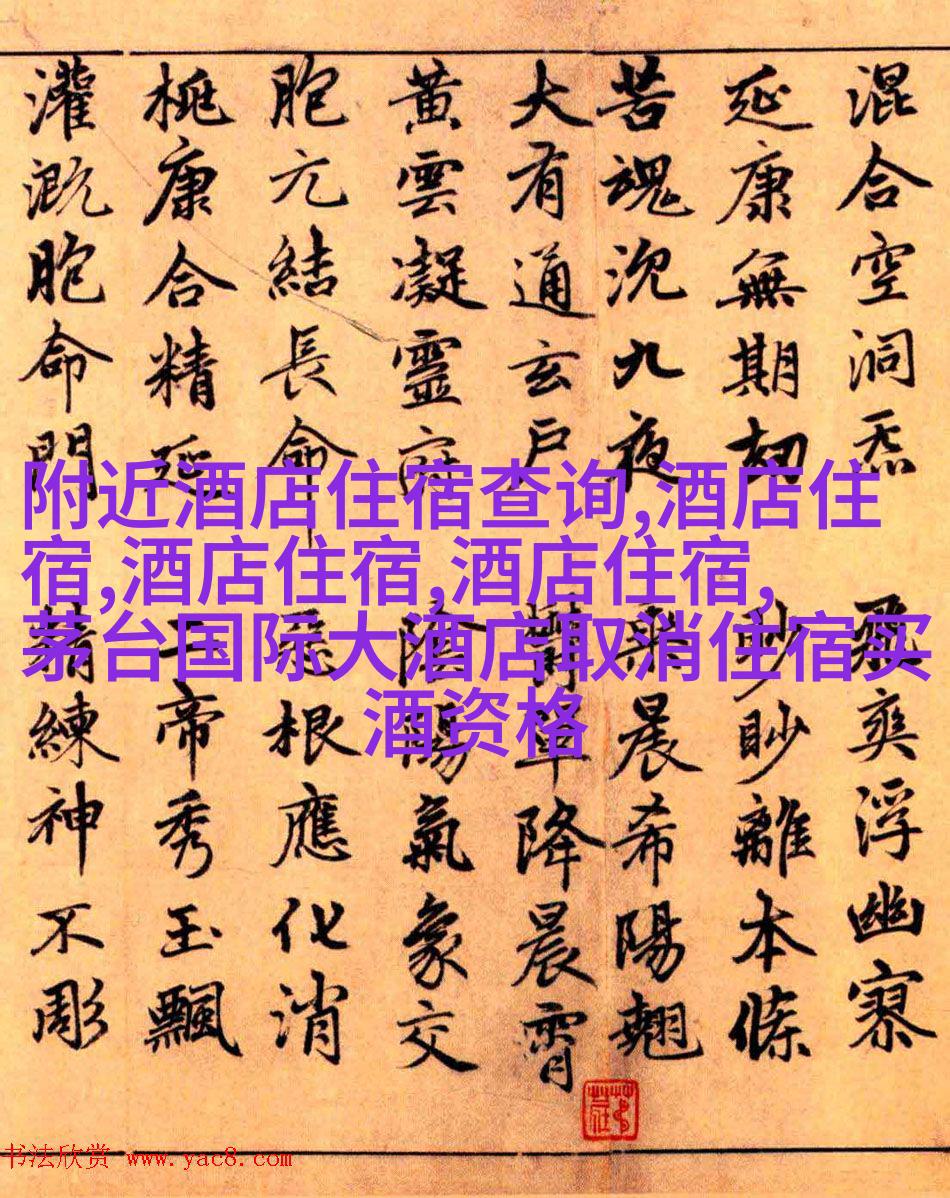 混合空洞炁 飛爽浮幽寥
延康無期劫 眇眇離本條
苦魂沉九夜 乘晨希陽翹
大有通玄戶 鬱單降晨霄
黃雲凝靈府 陰陽氣象交
胞元結長命 死根應化消
桃康合精延 帝秀玉飄
灌溉胞命門 精練神不彫
附近酒店住宿查询,酒店住
宿,酒店住宿,酒店住宿,
茅台国际大酒店取消住宿买
酒资格
书法欣赏 www.yac8.com